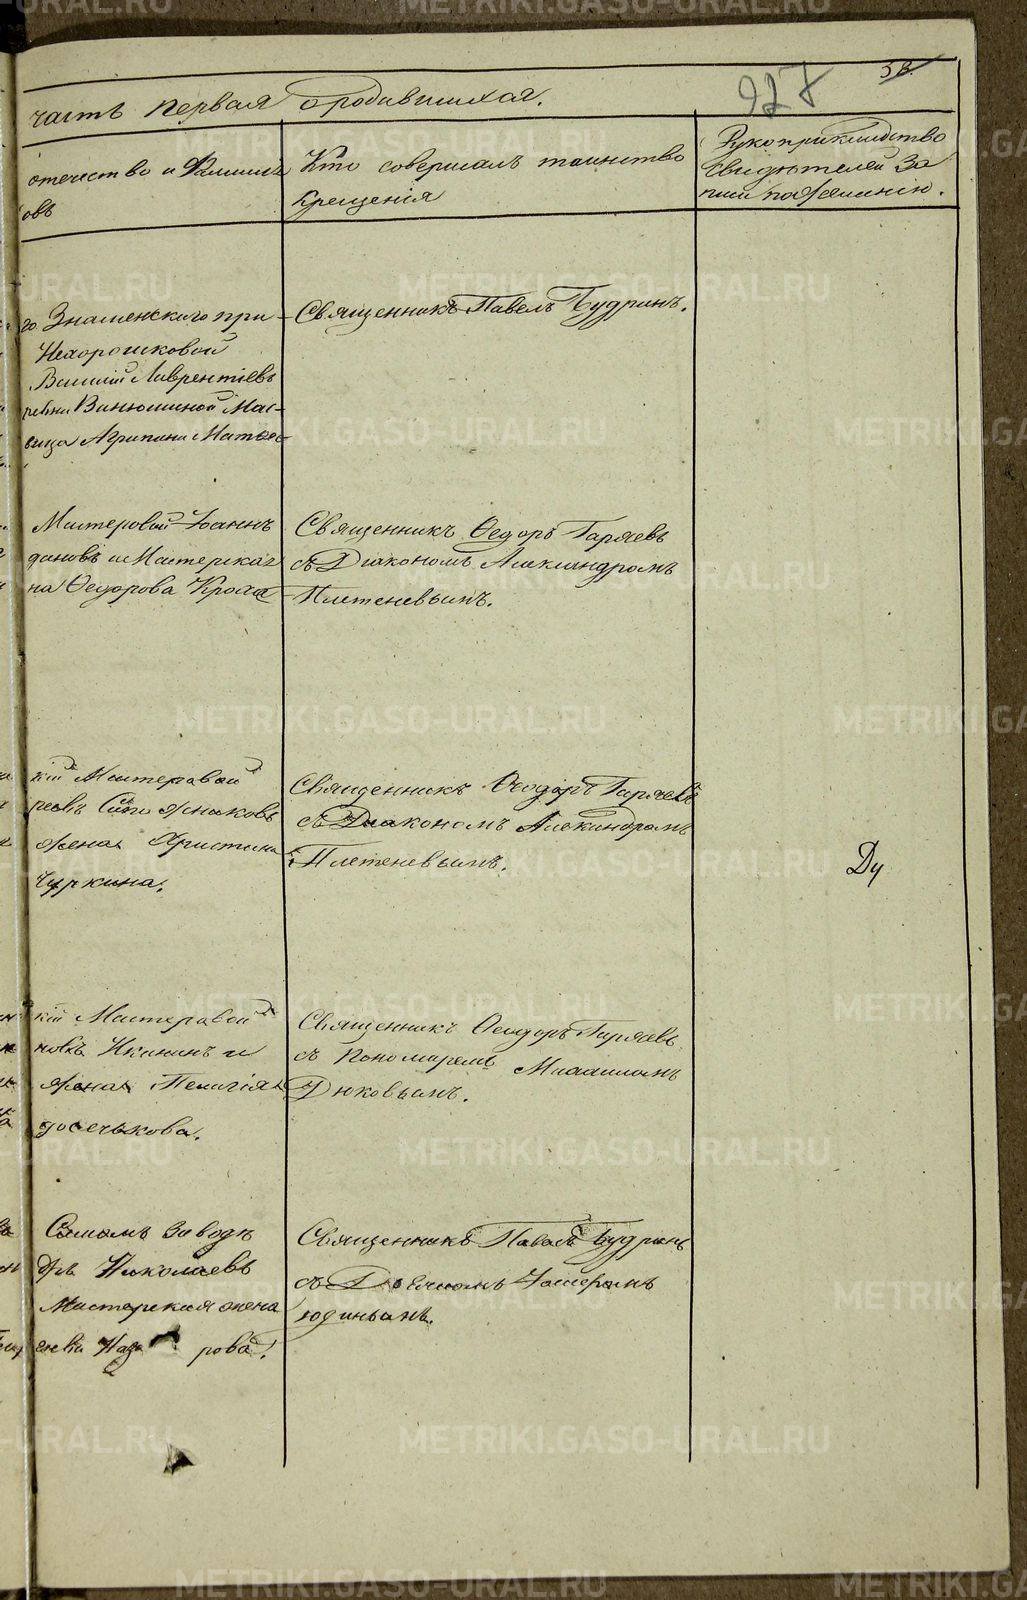 часть первая о родившихся.
927
58.
отечество и Фамилiя
овъ
Кто совершалъ таинство
крещенiя
Рукоприкладство
свидѣтелей За
писи по Желанiю.
го Знаменскаго при-
Нехорошковой
Василiй Лаврентiевъ
ревни Ванюшиной Мас-
вица Агрипина Матве
Священникъ Павелъ Будринъ.
Мастеровой Iоаннъ
дановъ и Мастерская
на Ѳедорова Крохи
Священникъ Ѳедоръ Гаряевъ
съ Дiакономъ Александромъ
Плетеневымъ.
кiй Мастеровой
Жена Христина
Чуркина.
Священникъ Ѳеодоръ Гаряевъ
съ Диакономъ Александромъ
Плетеневымъ.
Ду
кiй Мастеровой
новъ Икинъ и
Жена Пелагiя
досечькова.
Священникъ Ѳеодоръ Гаряевъ
съ пономаремъ Михаиломъ
Дюковымъ.
Самомъ Заводѣ
Николаевъ
Мастерская жена
рова.
Священникъ Павелъ Будринъ
съ Дьячкомъ
Юдинымъ.
METRIKI.GASO-URAL.RU